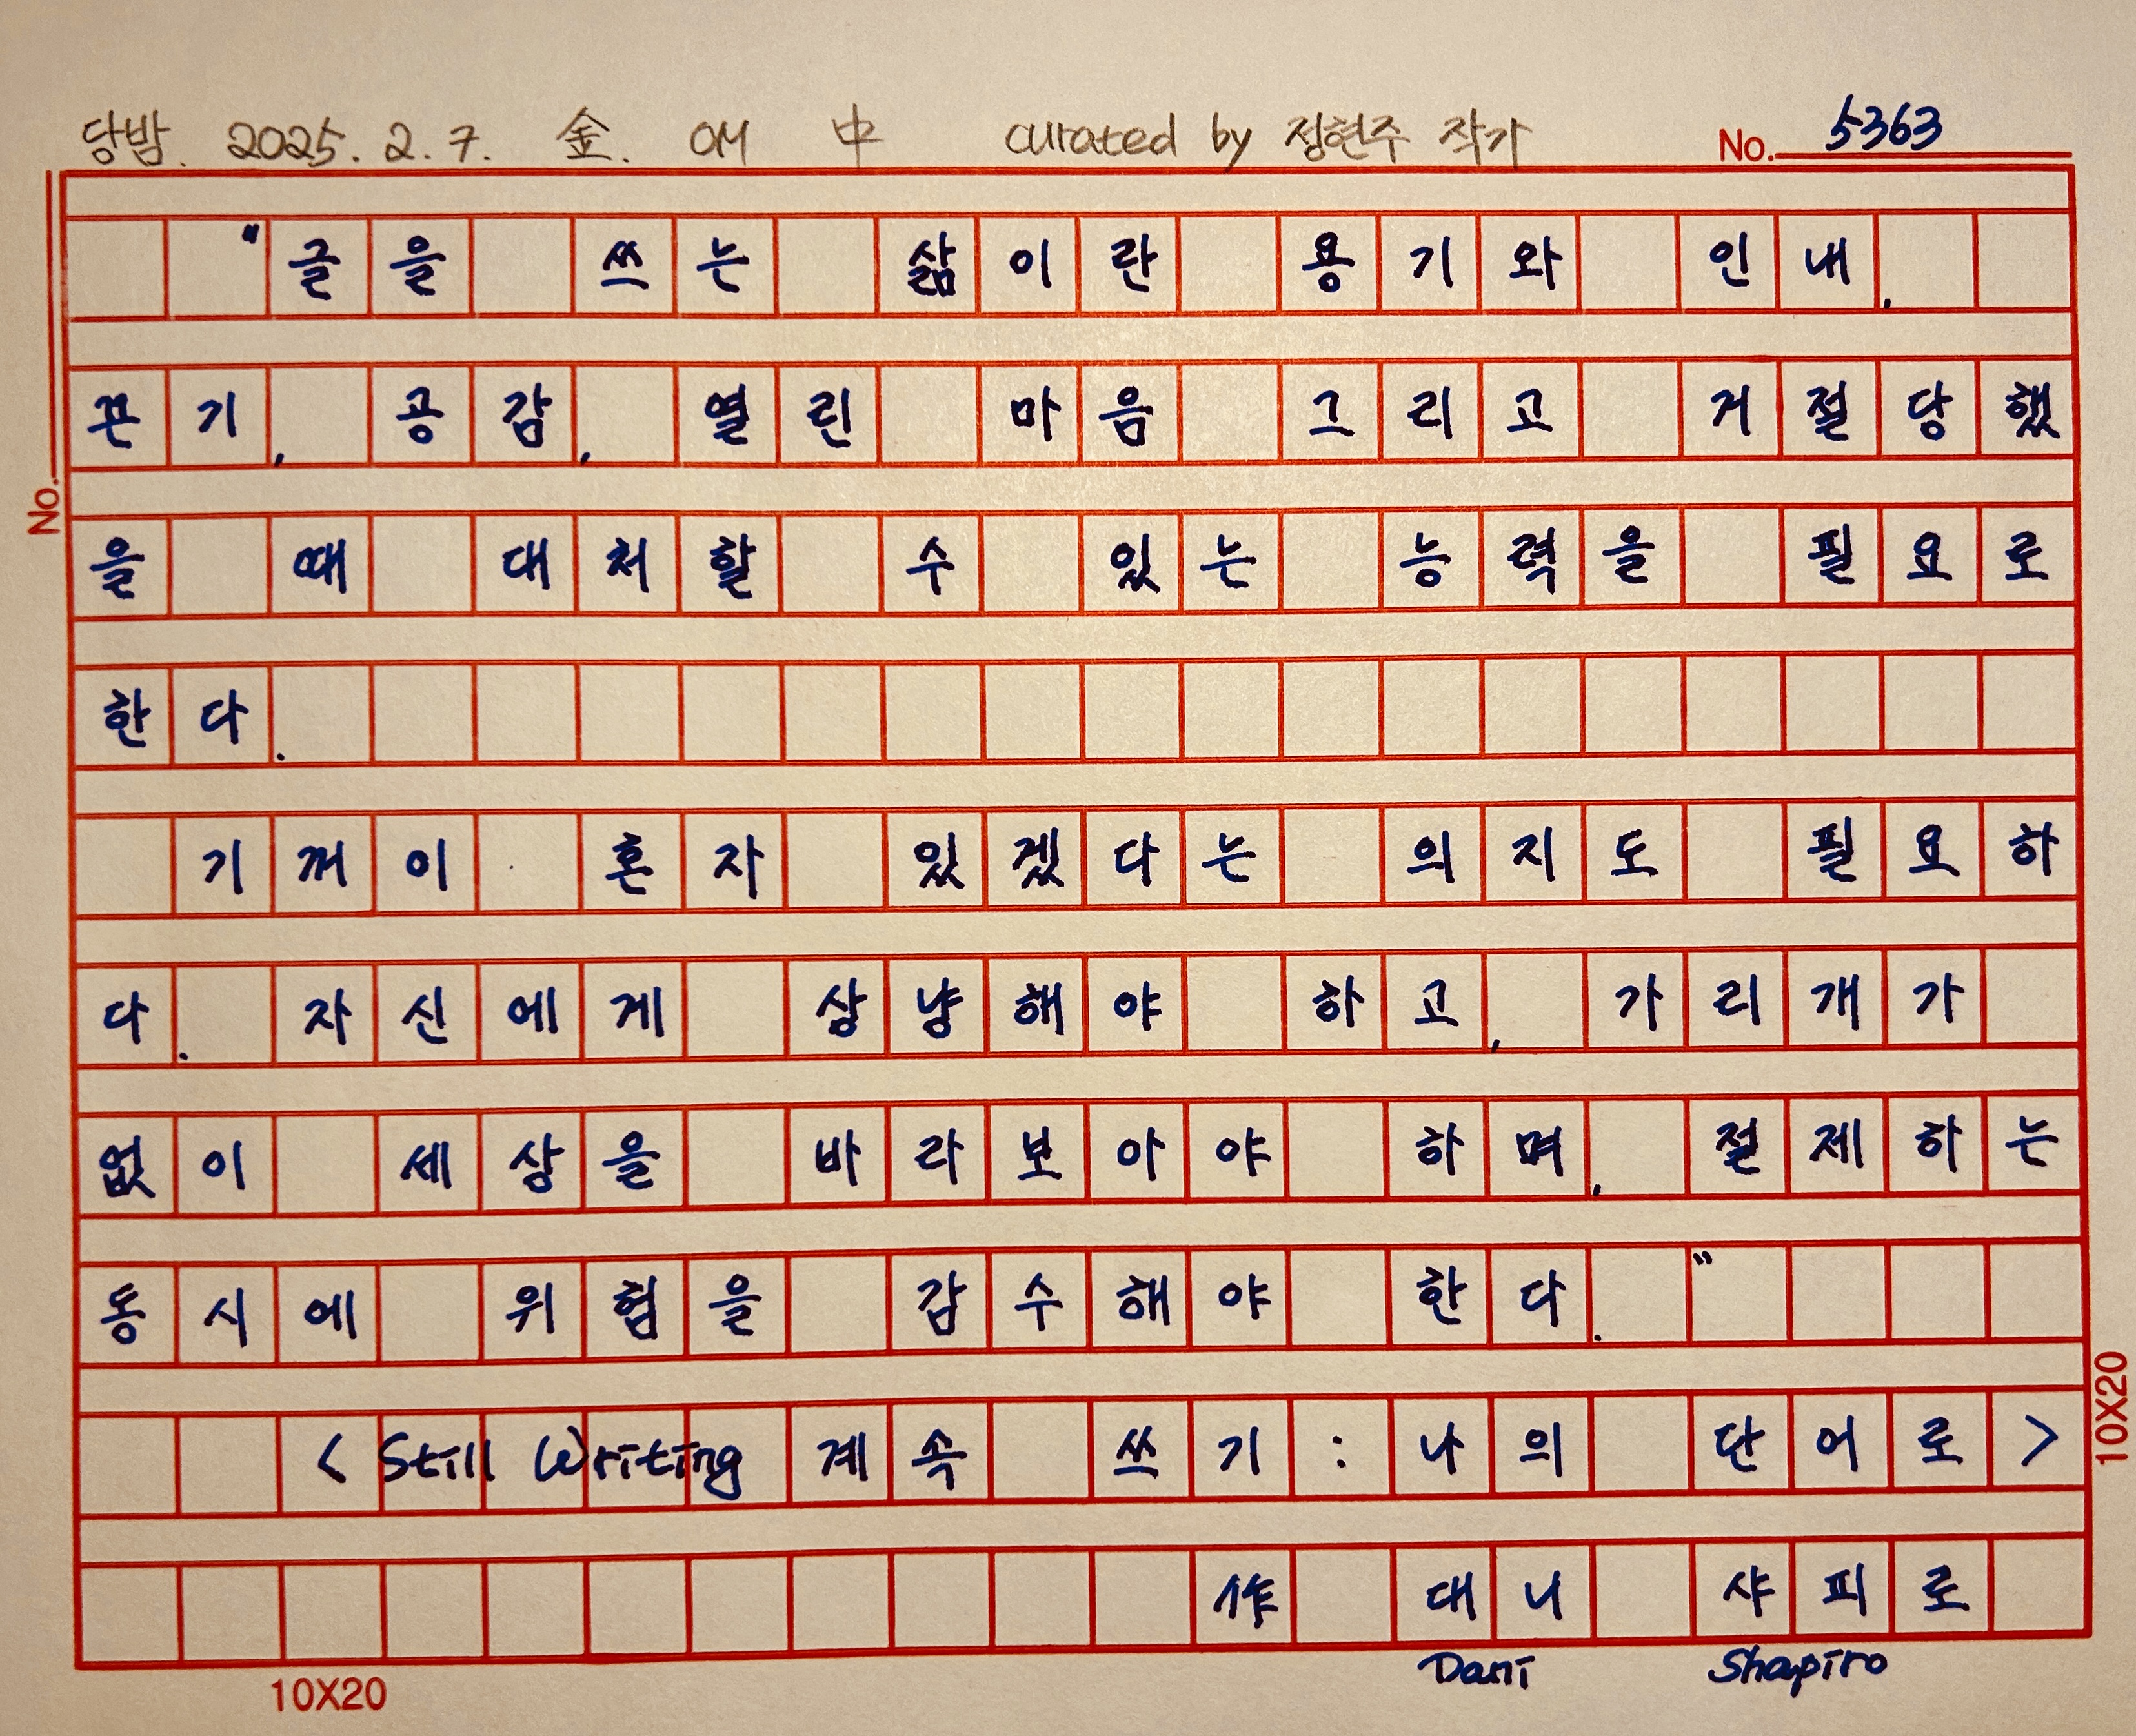 당밤. 2025. 2. 7. 金. OM 中 curated by 정현주 작가 No. 5363
"글을 쓰는 삶이란 용기와 인내,
끈기, 공감, 열린 마음 그리고 거절당했
을 때 대처할 수 있는 능력을 필요로
No.
한다.
기꺼이 혼자 있겠다는 의지도 필요하
다. 자신에게 상냥해야 하고, 가리개가
없이 세상을 바라보아야 하며, 절제하는
동시에 위험을 감수해야 한다."
<Still Writing 계속 쓰기 : 나의 단어로>
10X20
作 대니 샤피로
Dani Shapiro
10X20